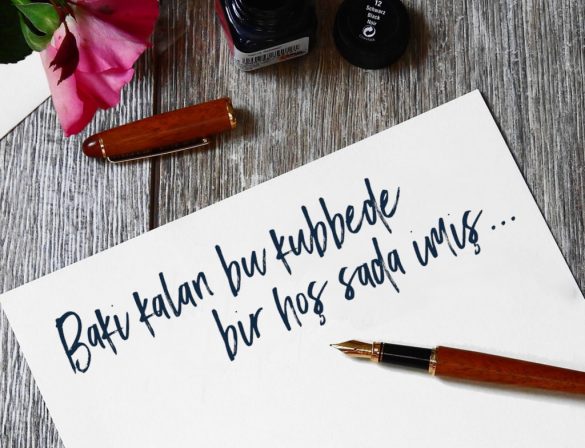 12
Schwarz
Black
Noir
Baki kalan bu kubbede
bir hoş sada imiş...